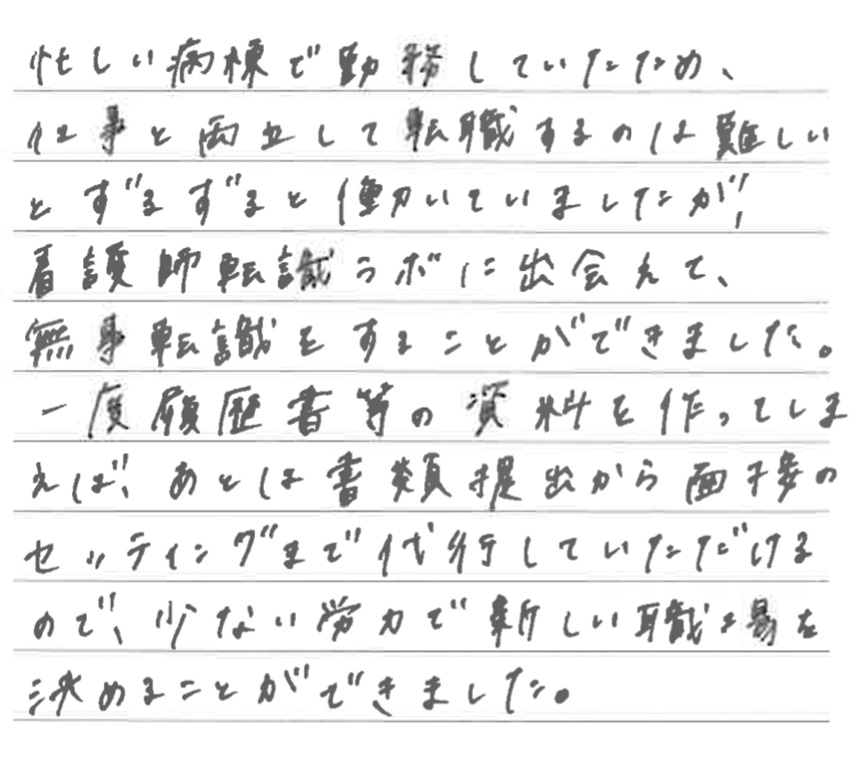 忙しい病棟で勤務していたため、
仕事と両立して転職するのは難しい
とずるずると働いていましたが、
看護師転職ラボに出会えて、
無事転職をすることができました。
一度履歴書等の資料を作ってしま
えば、あとは書類提出から面接の
セッティングまで代行していただける
ので、少ない労力で新しい職場を
決めることができました。